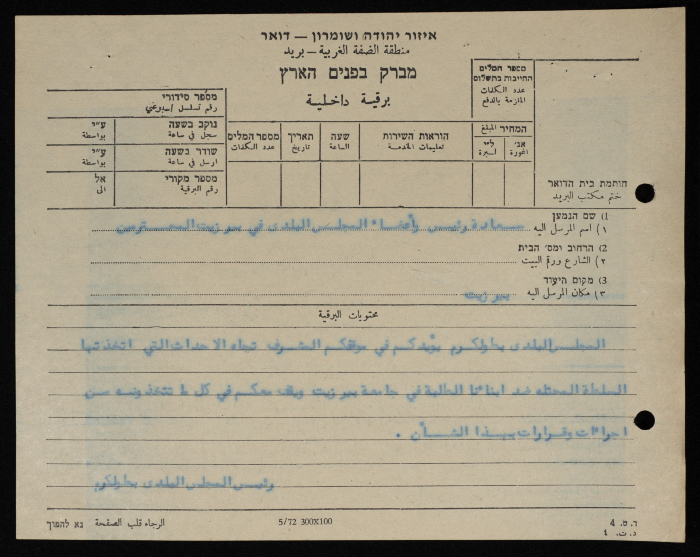 איזור יהודה ושומרון — דואר
منطقة الضفة الغربية — بريد
מברק בפנים הארץ
برقية داخلية
מספר המלים
החייבות בתשלום
عدد الكلمات
الملزمة بالدفع
המחיר المبلغ
אג' اغورة
ל"י ليرة
הוראות השירות
تعليمات الخدمة
שעה
الساعة
תאריך
تاريخ
מספר המלים
عدد الكلمات
מספר סידורי
رقم تسلسل اسبوعي
נוקב בשעה
سجل في ساعة
ע"י
بواسطة
שודר בשעה
ارسل في ساعة
ע"י
بواسطة
מספר מקורי
رقم البرقية
אל
الى
חותמת בית הדואר
ختم مكتب البريد
1) שם הנמען
١) اسم المرسل اليه سعادة رئيس وأعضاء المجلس البلدى في بير زيت المحترمين
2) הרחוב ומס' הבית
٢) الشارع ورقم البيت
3) מקום היעוד
٣) مكان المرسل اليه بير زيت
محتويات البرقية
المجلس البلدى بطولكرم يؤيدكم في موقفكم المشرف تجاه الاحداث التي اتخذتها
السلطة المحتله ضد ابنائنا الطلبة في جامعة بير زيت ويقف معكم في كل ما تتخذونه من
اجراءات وقرارات بهذا الشأن .
رئيس المجلس البلدى بطولكرم
ד. ס. 4
د. ت. ٤
5/72 300X100
الرجاء قلب الصفحة
נא להפוך